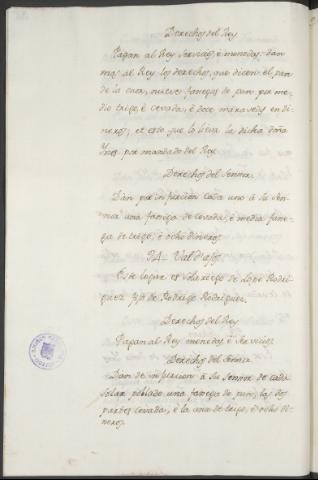 Derechos del Rey
Pagan al Rey servicios, é monedas: dan
mas al Rey los derechos, que dicen el pan
de la cara, nueve fanegas de pan, por me-
dio trigo, é cevada, é doce maravedis en di-
neros; et esto que lo lieva la dicha doña
Ynes por mandado del Rey.
Derechos del Señor.
Dan por infurcion cada uno á su Sen-
nor una fanega de cevada, é media fane-
ga de trigo, é ocho dineros.
74 Val d'ajos
Este logar es solariego de Lope Rodri-
guez fijo de Rodrigo Rodriguez.
Derechos del Rey
Pagan al Rey monedas é servicios
Derechos del Sennor
Dan de infurcion á su Sennor de cada
solar poblado una fanega de pan, las dos
partes cevada, é la una de trigo, é ocho di-
neros.